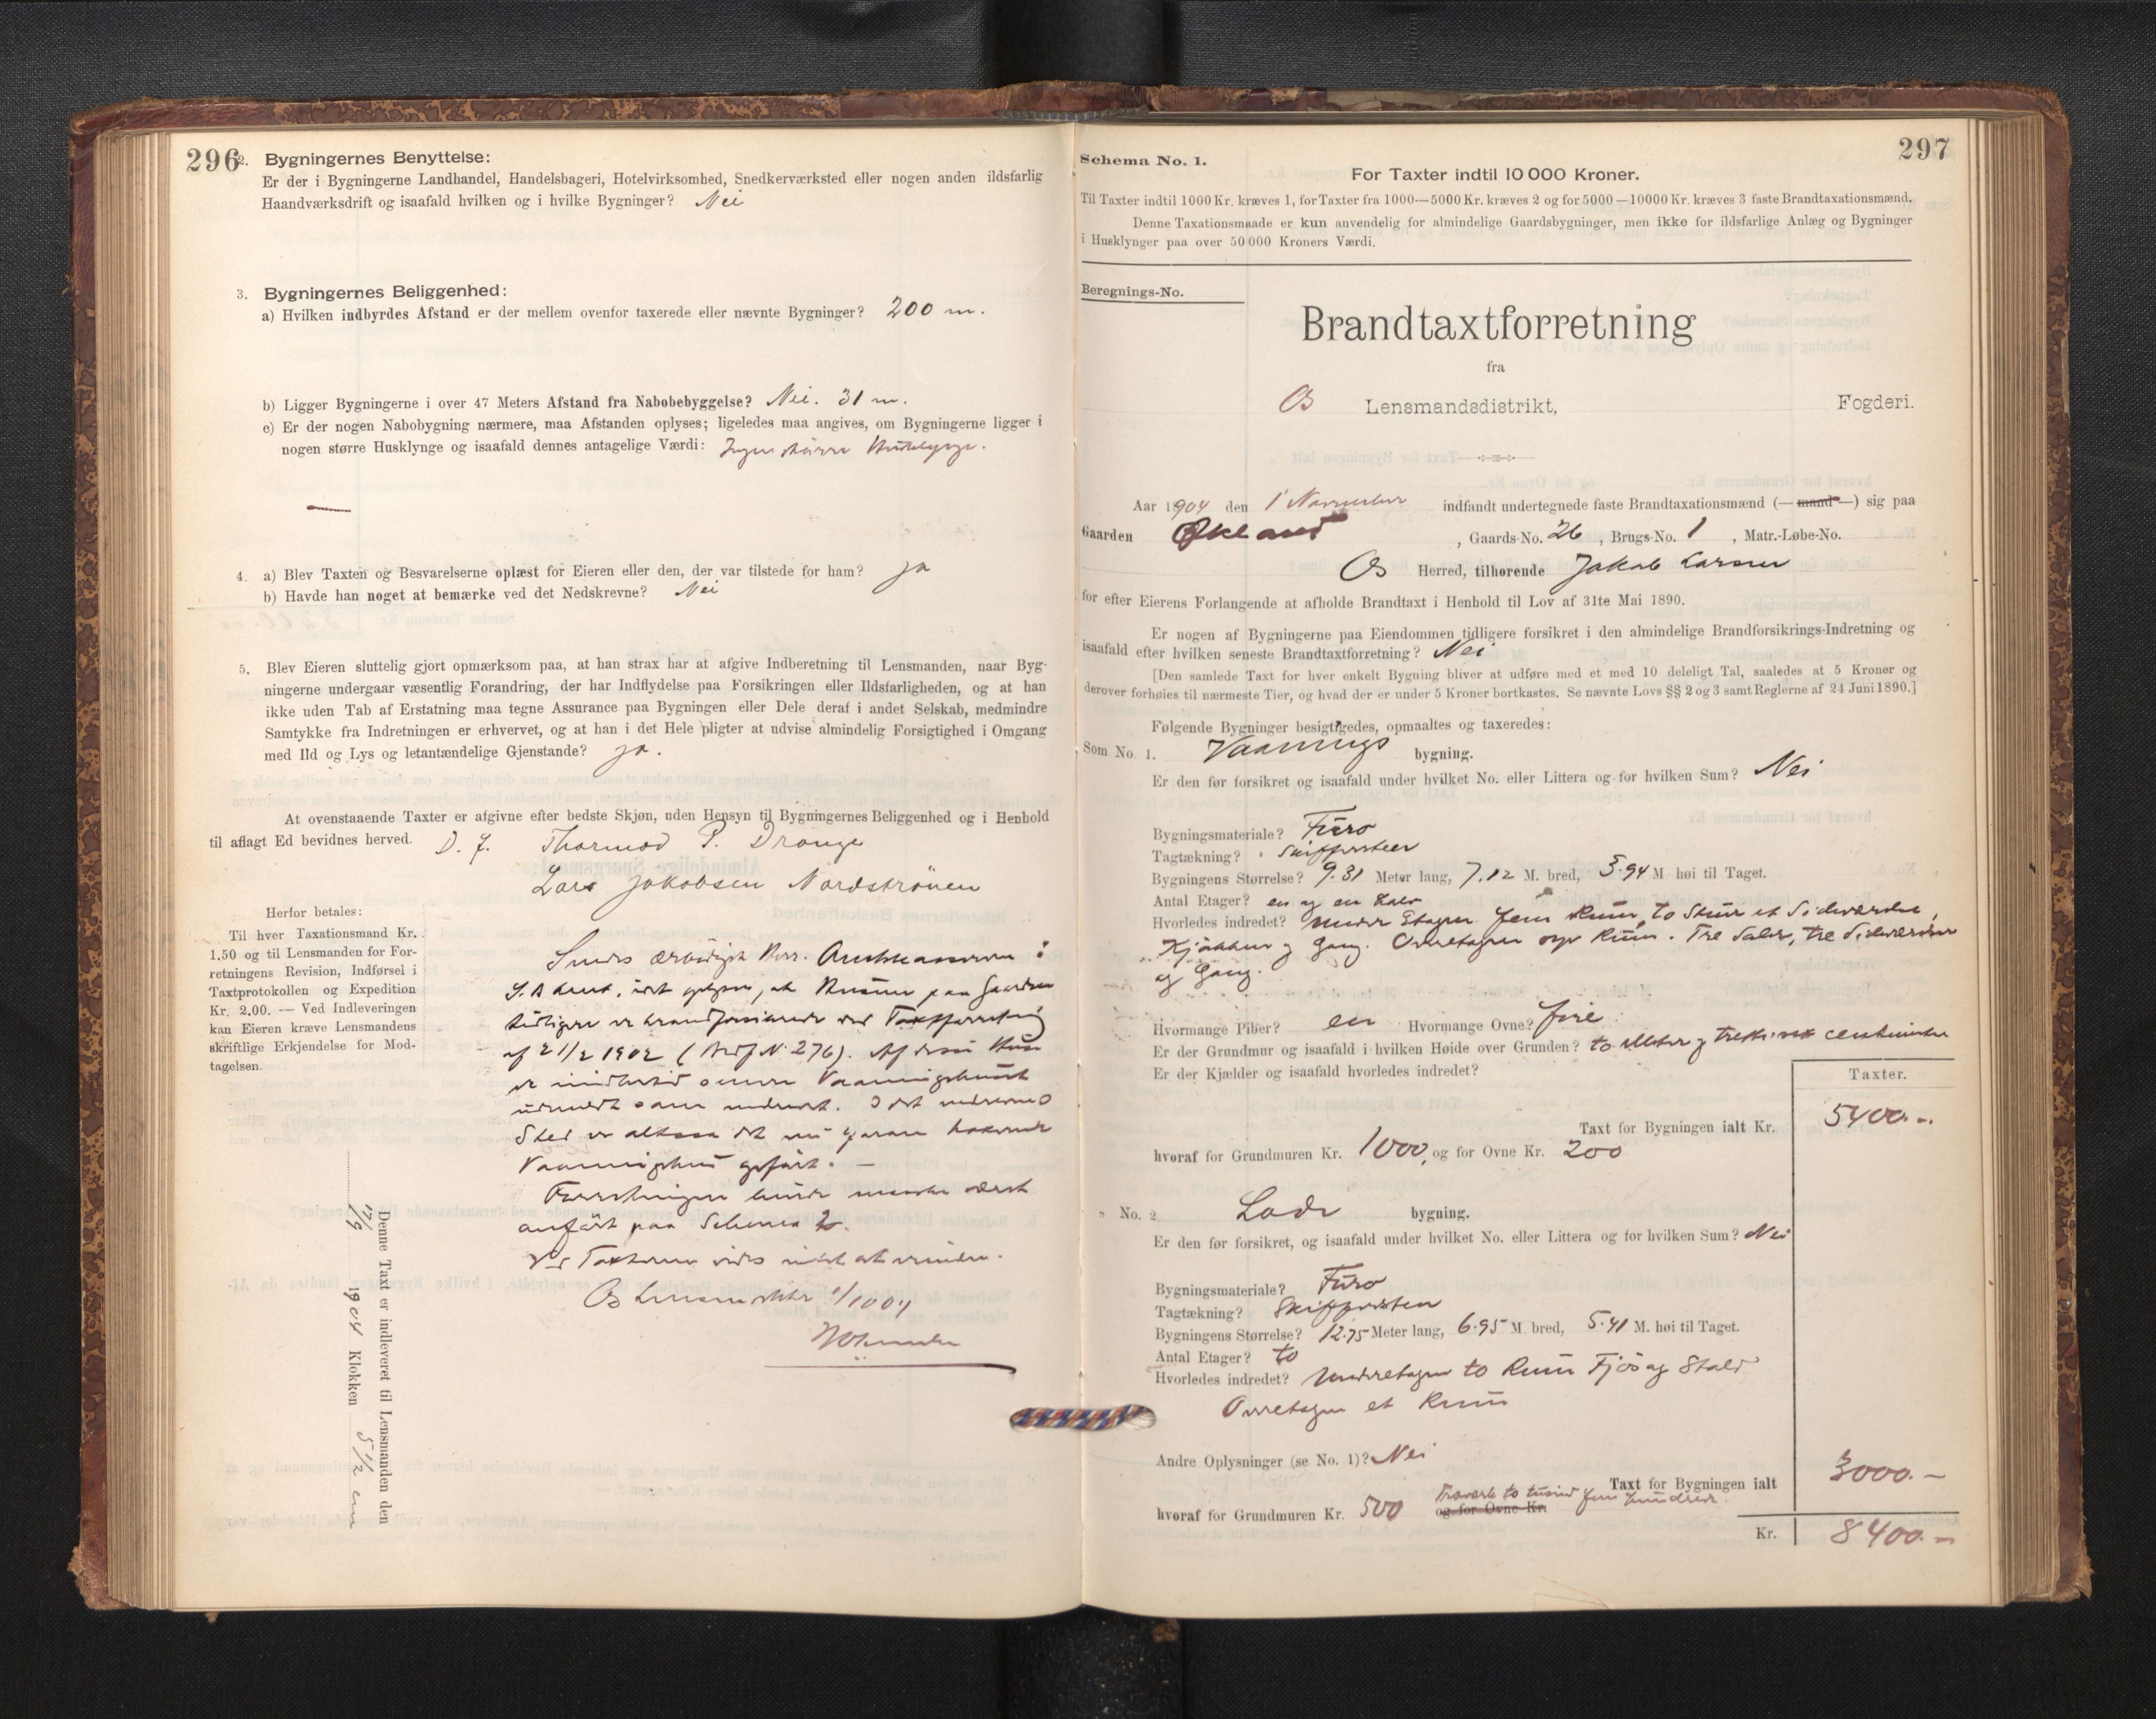 296
2. Bygningernes Benyttelse:
Er der i Bygningerne Landhandel, Handelsbageri, Hotelvirksomhed, Snedkerværksted eller nogen anden ildsfarlig
Haandværksdrift og isaafald hvilken og i hvilke Bygninger? Nei
3. Bygningernes Beliggenhed:
a) Hvilken indbyrdes Afstand er der mellem ovenfor taxerede eller nævnte Bygninger? 200 m.
b) Ligger Bygningerne i over 47 Meters Afstand fra Nabobebyggelse? Nei. 31 m.
c) Er der nogen Nabobygning nærmere, maa Afstanden oplyses; ligeledes maa angives, om Bygningerne ligger i
nogen større Husklynge og isaafald dennes antagelige Værdi: Ingen større Husklynge.
—
4. a) Blev Taxten og Besvarelserne oplæst for Eieren eller den, der var tilstede for ham? ja
b) Havde han noget at bemærke ved det Nedskrevne? Nei
5. Blev Eieren sluttelig gjort opmærksom paa, at han strax har at afgive Indberetning til Lensmanden, naar Byg-
ningerne undergaar væsentlig Forandring, der har Indflydelse paa Forsikringen eller Ildsfarligheden, og at han
ikke uden Tab af Erstatning maa tegne Assurance paa Bygningen eller Dele deraf i andet Selskab, medmindre
Samtykke fra Indretningen er erhvervet, og at han i det Hele pligter at udvise almindelig Forsigtighed i Omgang
med Ild og Lys og letantændelige Gjenstande? ja.
At ovenstaaende Taxter er afgivne efter bedste Skjøn, uden Hensyn til Bygningernes Beliggenhed og i Henhold
til aflagt Ed bevidnes herved. D. J. Thormod P. Drange
Lars Jakobsen Nordströnen
Herfor betales:
Til hver Taxationsmand Kr.
1,50 og til Lensmanden for For-
retningens Revision, Indførsel i
Taxtprotokollen og Expedition
Kr. 2.00. — Ved Indleveringen
kan Eieren kræve Lensmandens
skriftlige Erkjendelse for Mod-
tagelsen.
Sendes ærbödigst Herr
at Husene paa Gaarden
tidligere er brandforsikrede ved Taxtforretning
af 21/2 1902 ( N 276). Af disse Huse
er imidlertid senere Vaaningshuset
som nedrevet. I det nedrevne
Sted er altsaa det nu
Vaaningshus opfört. —
Forretningen burde maaske været
anfört paa Schema 2.
Ved Taxterne vides intet at erindre.
Os 1/11 04
Denne Taxt er indleveret til Lensmanden den
17/9 1904 Klokken 5 1/2 em
297
Schema No. 1.
For Taxter indtil 10 000 Kroner.
Til Taxter indtil 1000 Kr. kræves 1, for Taxter fra 1000—5000 Kr. kræves 2 og for 5000—10000 Kr. kræves 3 faste Brandtaxationsmænd.
Denne Taxationsmaade er kun anvendelig for almindelige Gaardsbygninger, men ikke for ildsfarlige Anlæg og Bygninger
i Husklynger paa over 50 000 Kroners Værdi.
Beregnings-No.
Brandtaxtforretning
fra
Os Lensmandsdistrikt, Fogderi.
Aar 1904 den 1 November indfandt undertegnede faste Brandtaxationsmænd (— mand —) sig paa
Gaarden Økland, Gaards-No. 26, Brugs-No. 1, Matr.-Løbe-No.
Os Herred, tilhørende Jakob Larsen
for efter Eierens Forlangende at afholde Brandtaxt i Henhold til Lov af 31te Mai 1890.
Er nogen af Bygningerne paa Eiendommen tidligere forsikret i den almindelige Brandforsikrings-Indretning og
isaafald efter hvilken seneste Brandtaxtforretning? Nei
[Den samlede Taxt for hver enkelt Bygning bliver at udføre med et med 10 deleligt Tal, saaledes at 5 Kroner og
derover forhøies til nærmeste Tier, og hvad der er under 5 Kroner bortkastes. Se nævnte Lovs §§ 2 og 3 samt Reglerne af 24 Juni 1890.]
Følgende Bygninger besigtigedes, opmaaltes og taxeredes:
Som No. 1. Vaanings bygning.
Er den før forsikret og isaafald under hvilket No. eller Littera og for hvilken Sum? Nei
Bygningsmateriale? Furo
Tagtækning? Skiffersteen
Bygningens Størrelse? 9.31 Meter lang, 7.12 M. bred, 5.94 M høi til Taget.
Antal Etager? en og en halv
Hvorledes indredet? Under Etagen fem Rum, to Stuer et Sideværelse,
Kjøkken og Gang. Overetagen syv Rum. Tre Saler, tre Sideværelser
og Gang.
Hvormange Piber? en Hvormange Ovne? fire
Er der Grundmur og isaafald i hvilken Høide over Grunden? to Meter og centimeter
Er der Kjælder og isaafald hvorledes indredet?
Taxter.
Taxt for Bygningen ialt Kr. 5400.-
hvoraf for Grundmuren Kr. 1000, og for Ovne Kr. 200
" No. 2 Lade bygning.
Er den før forsikret, og isaafald under hvilket No. eller Littera og for hvilken Sum? Nei
Bygningsmateriale? Furo
Tagtækning? Skiffersten
Bygningens Størrelse? 12.75 Meter lang, 6.95 M. bred, 5.41 M. høi til Taget.
Antal Etager? to
Hvorledes indredet? Underetagen to Rum Fjös og Stald
Overetagen et Rum
Andre Oplysninger (se No. 1)? Nei
Taxt for Bygningen ialt 3000.-
Træverk to tusind fem hundrede.
hvoraf for Grundmuren Kr. 500 og for Ovne Kr.
Kr. 8400.-